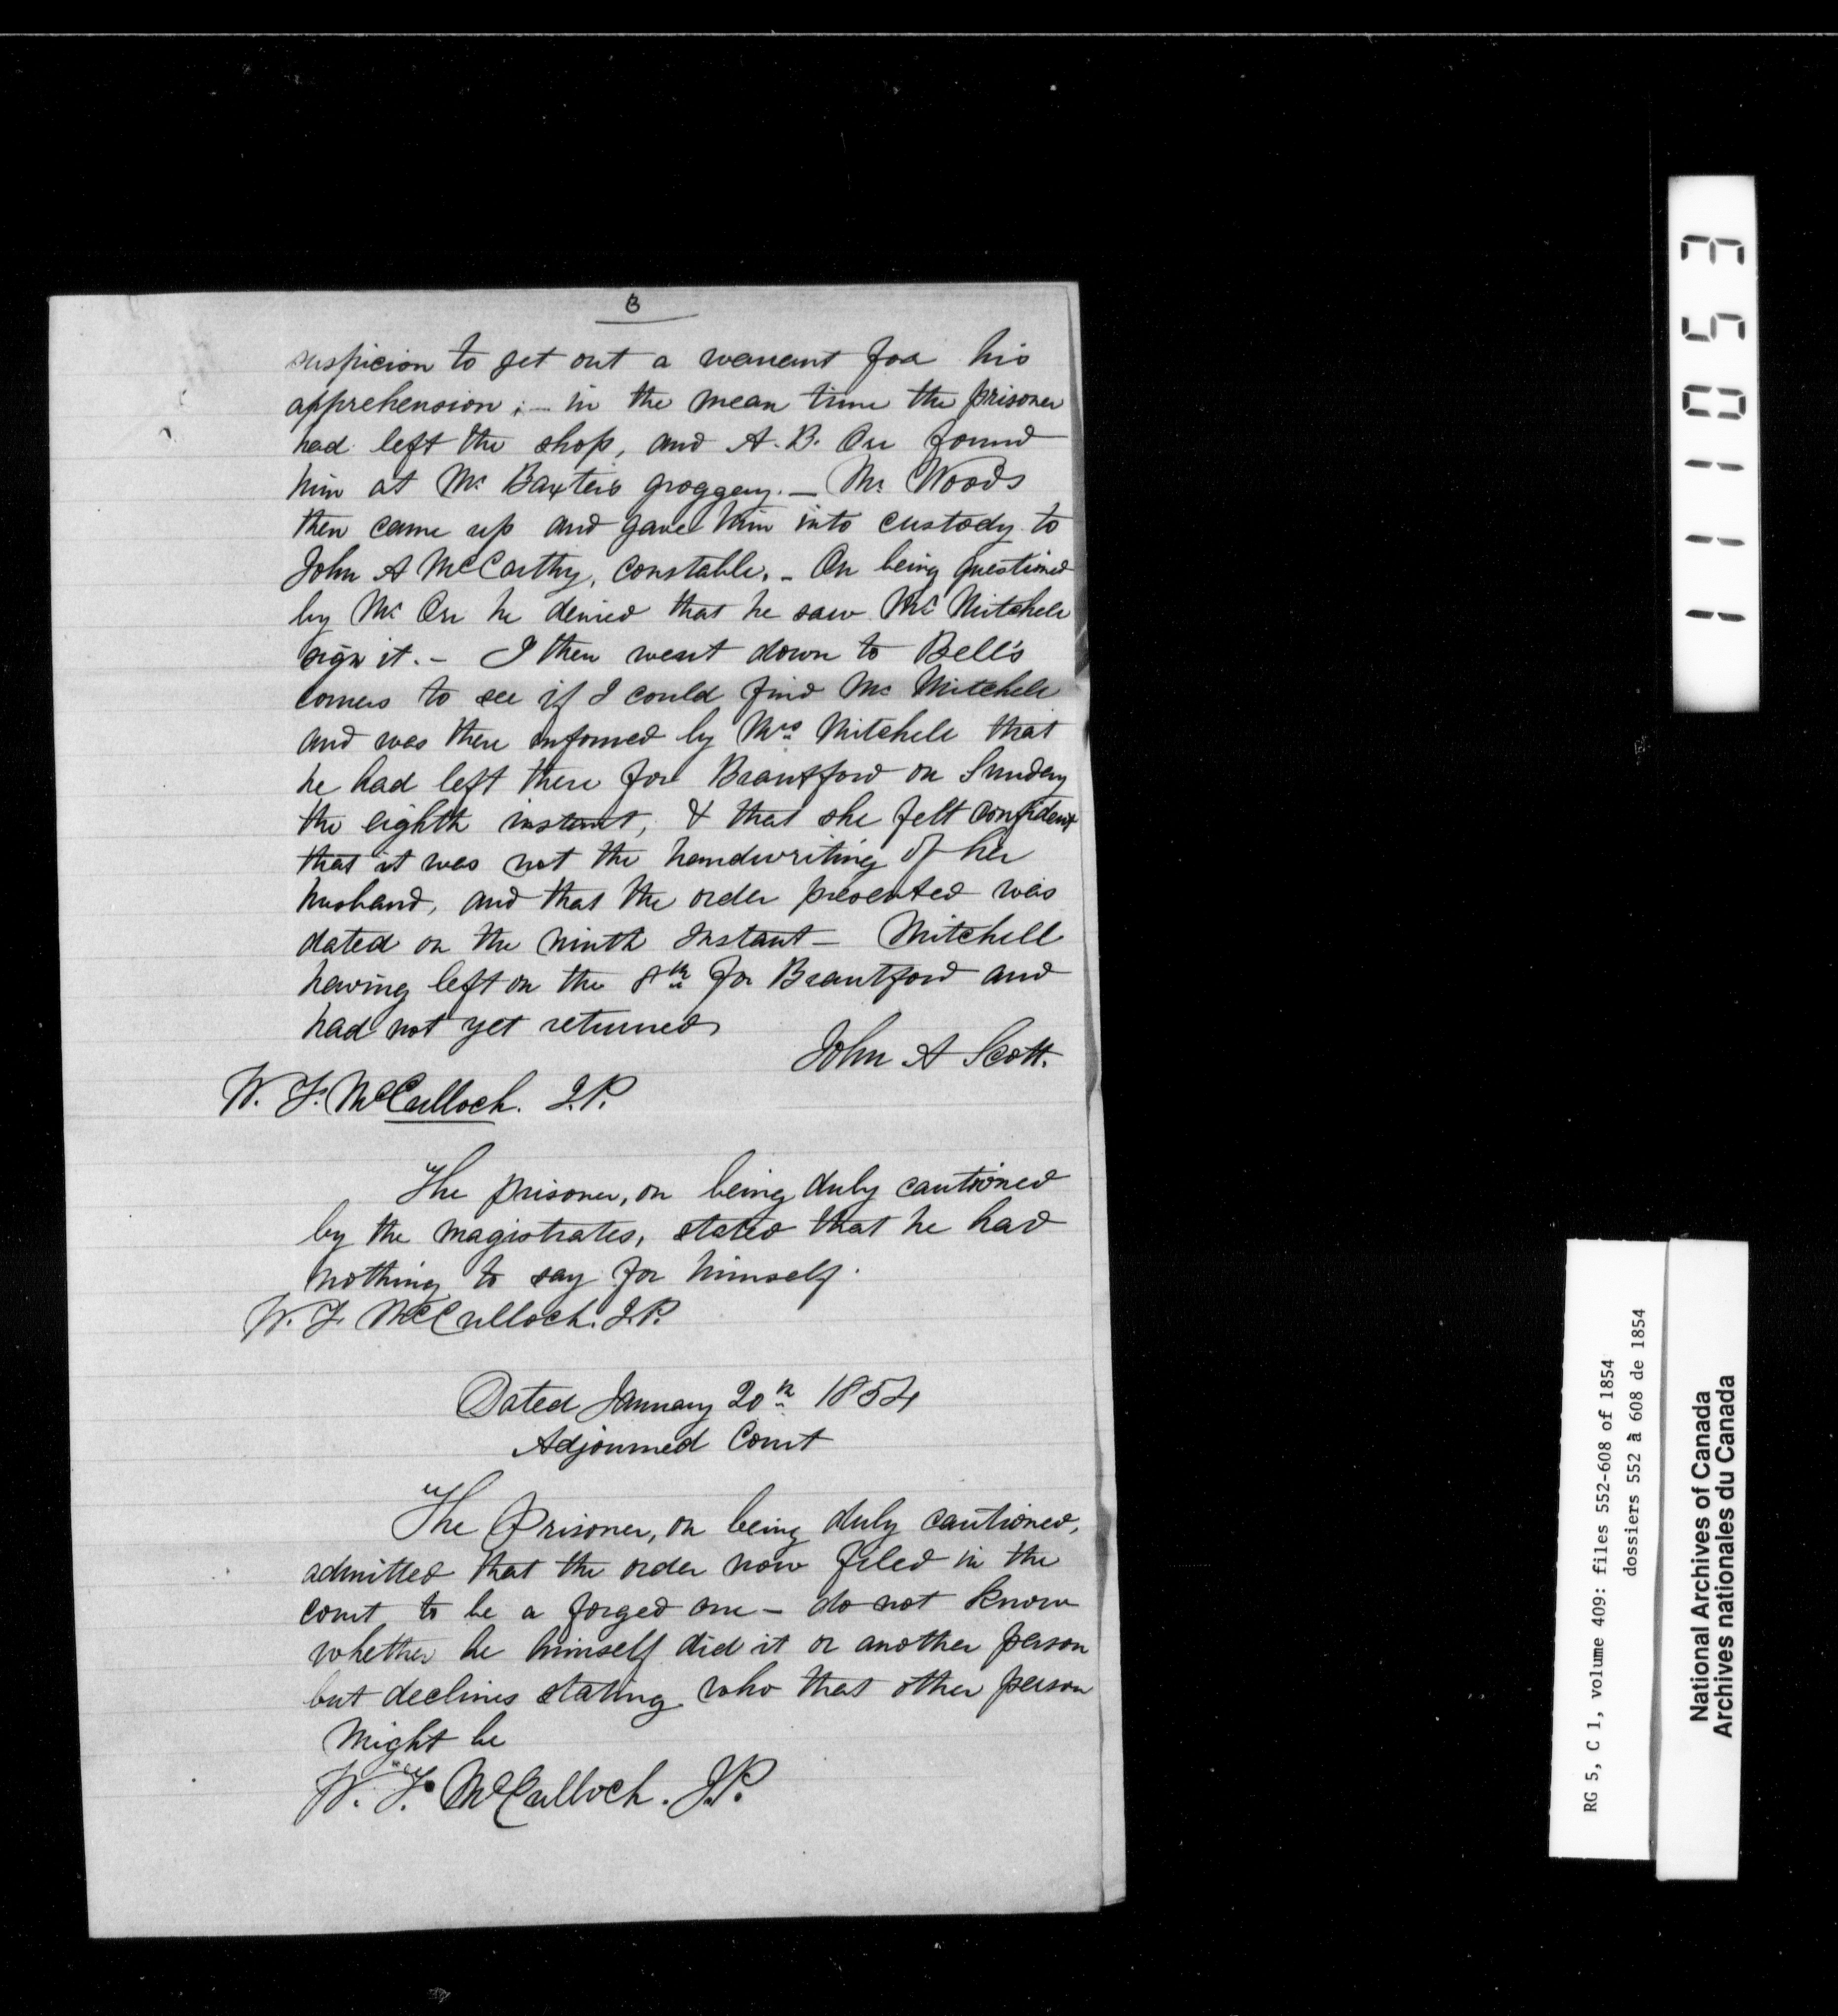 3
suspicion to get out a warrant for his
apprehension; – in the mean time the prisoner
had left the shop, and A. B. Orr found
him at Mr Baxter's groggery. – Mr Woods
then came up and gave him into custody to
John A McCarthy, constable. – On being questioned
by Mr Orr he denied that he saw Mr Mitchell
sign it. – I then went down to Bell's
corners to see if I could find Mr Mitchell
and was there informed by Mrs Mitchell that
he had left there for Brantford on Sunday
the eighth instant, & that she felt confident
that it was not the handwriting of her
husband, and that the order presented was
dated on the ninth Instant – Mitchell
having left on the 8th for Brantford and
had not yet returned
John A Scott.
W. F. McCulloch. J.P.
The prisoner, on being duly cautioned
by the magistrates, stated that he had
nothing to say for himself.
W. F. McCulloch. J.P.
Dated January 20th 1854
Adjourned Court
The Prisoner, on being duly cautioned,
admitted that the order now filed in the
court to be a forged one – do not know
whether he himself did it or another person
but declines stating who that other person
might be
W. F. McCulloch. J.P.
111053
RG 5, C 1, volume 409: files 552-608 of 1854
dossiers 552 à 608 de 1854
National Archives of Canada
Archives nationales du Canada